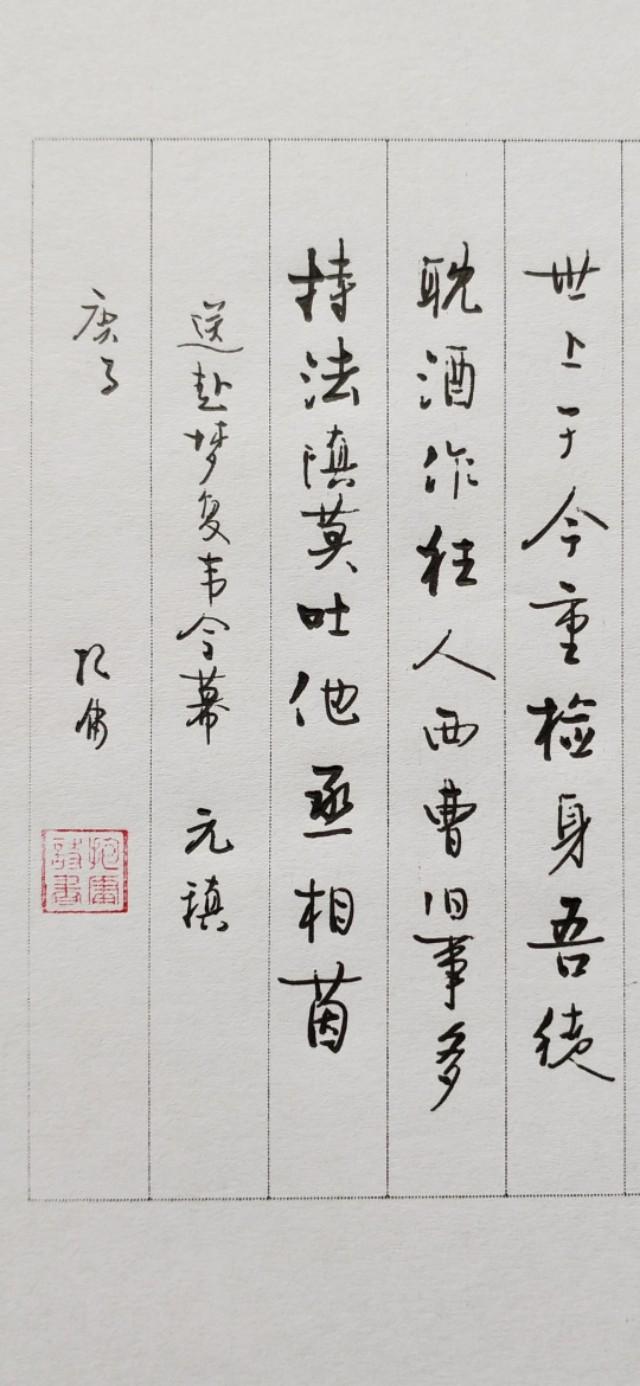 世上于今重检身吾徒
耽酒作狂人西曹旧事多
持法慎莫吐他丞相茵
送赴梦复韦令幕 元稹
庚子